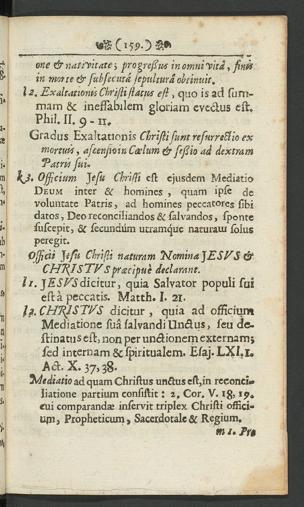 (159.)
one & nativitate; progreßus in omni vitâ, finis
in morte & subsecutâ sepulturâ obtinuit.
l2. Exaltationis Christi status est, quo is ad sum-
mam & ineffabilem gloriam evectus est.
Phil. II. 9 - 11.
Gradus Exaltationis Christi sunt resurrectio ex
mortuis, ascensio in Cœlum & seßio ad dextram
Patris sui.
k3. Officium Jesu Christi est ejusdem Mediatio
DEUM inter & homines, quam ipse de
voluntate Patris, ad homines peccatores sibi
datos, Deo reconciliandos & salvandos, sponte
suscepit, & secundùm utramque naturam solus
peregit.
Officii Jesu Christi naturam Nomina JESVS &
CHRISTVS præcipuè declarant.
l1. JESVS dicitur, quia Salvator populi sui
est à peccatis. Matth. I. 21.
l2. CHRISTVS dicitur, quia ad officium
Mediatione suâ salvandi Unctus, seu de-
stinatus est, non per unctionem externam;
sed internam & spiritualem. Esaj. LXI, 1.
Act. X. 37, 38.
Mediatio ad quam Christus unctus est, in reconci-
liatione partium consistit: 2. Cor. V. 18, 19.
cui comparandæ inservit triplex Christi offici-
um, Propheticum, Sacerdotale & Regium.
m 1. Pro